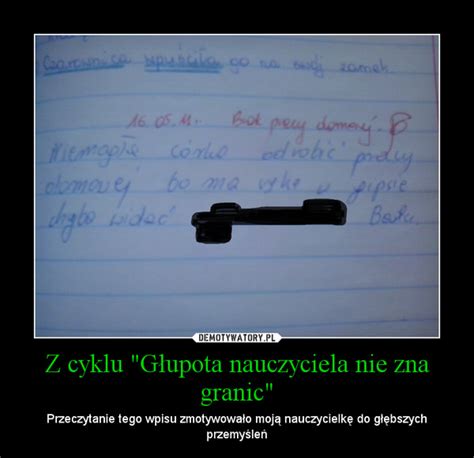 Czarownica wpuściła go na swój zamek.
16.05.11. Brak pracy domowej.
Niemogła córka odrobić pracy
domowej bo ma rękę w gipsie
chyba widać
DEMOTYWATORY.PL
Z cyklu "Głupota nauczyciela nie zna
granic"
Przeczytanie tego wpisu zmotywowało moją nauczycielkę do głębszych
przemyśleń